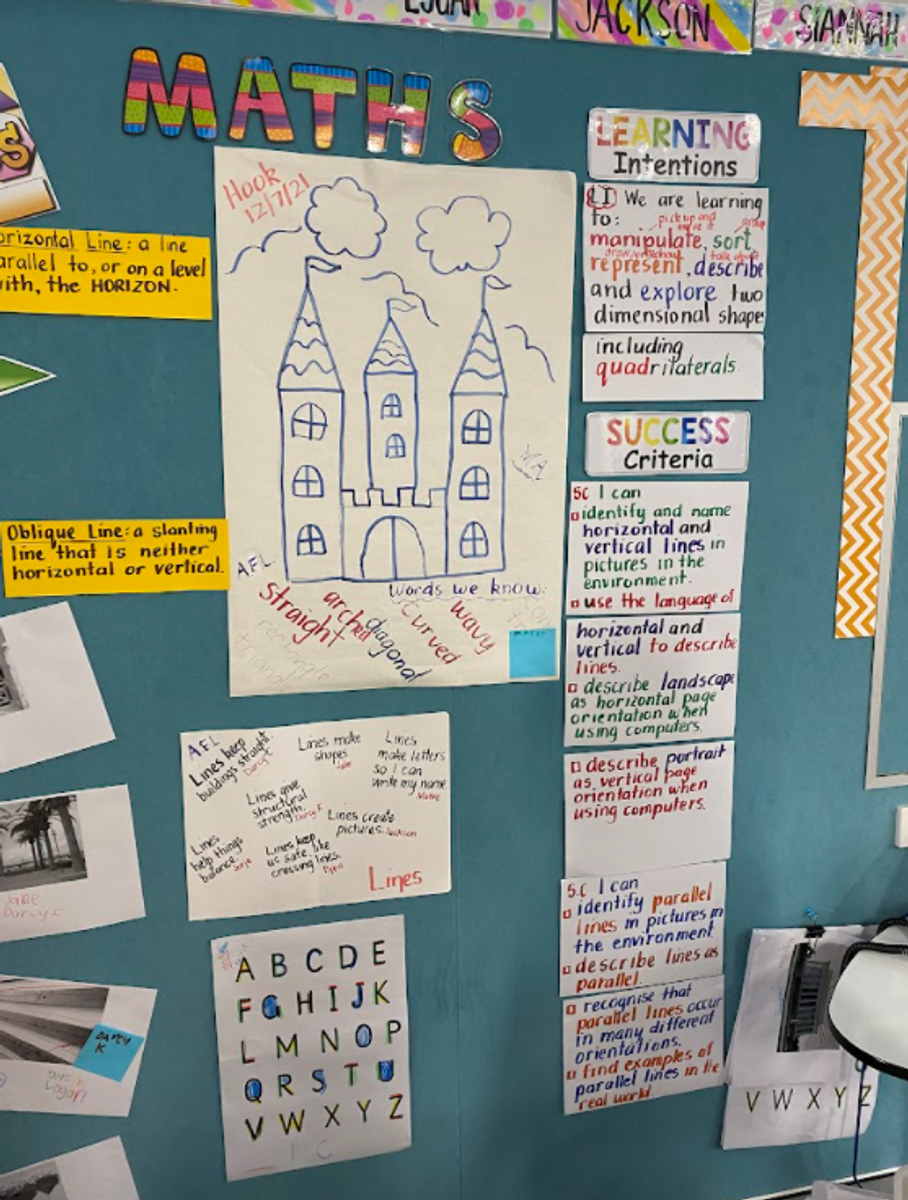 JACKSON
SIANNAH
MATHS
Hook
12/7/21
orizontal Line: a line
arallel to, or on a level
ith, the HORIZON.
Oblique Line: a slanting
line that is neither
horizontal or vertical.
AFL
words we know:
straight
arched
diagonal
curved
wavy
AFL
Lines keep
buildings straight.
Lines make
shapes
Lines
make letters
so I can
write my name
Lines give
structural
strength.
Lines create
pictures. Jackson
Lines
help things
balance.
Lines keep
us safe like
crossing lines.
Lines
A B C D E
F G H I J K
L M N O P
Q R S T U
V W X Y Z
LEARNING
Intentions
LI We are learning
to:
pick up and
move it
group
manipulate, sort,
represent, describe
and explore two
dimensional shape
including
quadrilaterals.
SUCCESS
Criteria
SC I can
identify and name
horizontal and
vertical lines in
pictures in the
environment.
use the language of
horizontal and
vertical to describe
lines.
describe landscape
as horizontal page
orientation when
using computers.
describe portrait
as vertical page
orientation when
using computers.
S.C I can
identify parallel
lines in pictures in
the environment
describe lines as
parallel.
recognise that
parallel lines occur
in many different
orientations.
find examples of
parallel lines in the
real world
JAKE
Darcy C
DARCY
K
V W X Y Z